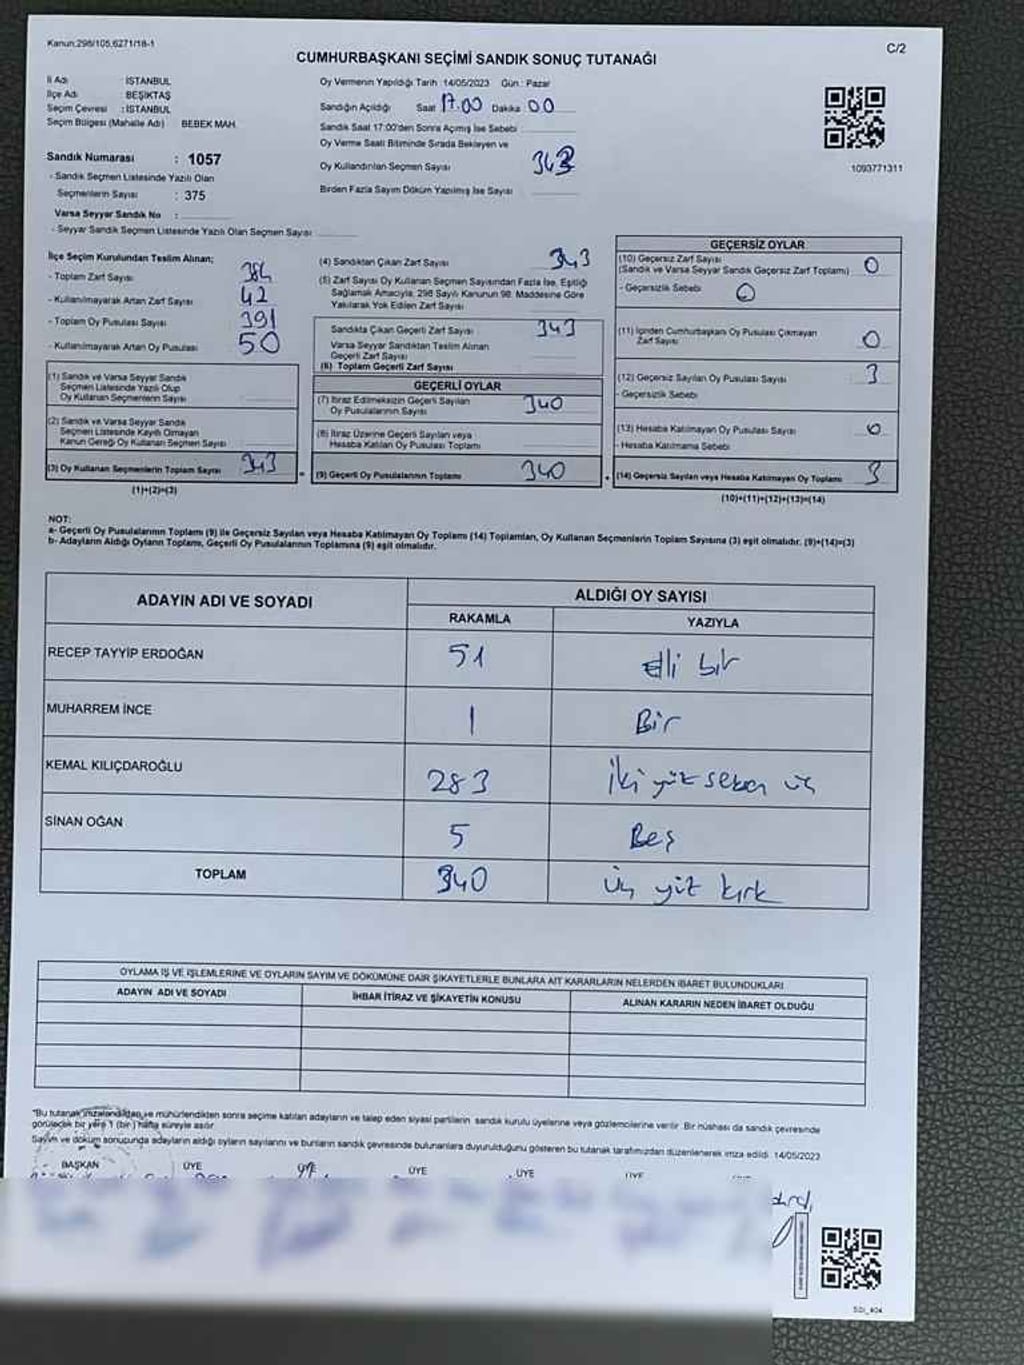 Kanun:298/105,6271/18-1
C/2
CUMHURBAŞKANI SEÇİMİ SANDIK SONUÇ TUTANAĞI
İl Adı : İSTANBUL
İlçe Adı : BEŞİKTAŞ
Seçim Çevresi : İSTANBUL
Seçim Bölgesi (Mahalle Adı) BEBEK MAH.
Sandık Numarası : 1057
- Sandık Seçmen Listesinde Yazılı Olan
Seçmenlerin Sayısı : 375
Varsa Seyyar Sandık No :
- Seyyar Sandık Seçmen Listesinde Yazılı Olan Seçmen Sayısı
Oy Vermenin Yapıldığı Tarih 14/05/2023 Gün : Pazar
Sandığın Açıldığı Saat 17.00 Dakika 00
Sandık Saat 17:00'den Sonra Açımış İse Sebebi
Oy Verme Saati Bitiminde Sırada Bekleyen ve
Oy Kullandırılan Seçmen Sayısı
Birden Fazla Sayım Döküm Yapılmış İse Sayısı
1093771311
İlçe Seçim Kurulundan Teslim Alınan;
- Toplam Zarf Sayısı
- Kullanılmayarak Artan Zarf Sayısı 42
- Toplam Oy Pusulası Sayısı 391
- Kullanılmayarak Artan Oy Pusulası 50
(1) Sandık ve Varsa Seyyar Sandık
Seçmen Listesinde Yazılı Olup
Oy Kullanan Seçmenlerin Sayısı
(2) Sandık ve Varsa Seyyar Sandık
Seçmen Listesinde Kayıtlı Olmayan
Kanun Gereği Oy Kullanan Seçmen Sayısı
(3) Oy Kullanan Seçmenlerin Toplam Sayısı 343
(1)+(2)=(3)
(4) Sandıktan Çıkan Zarf Sayısı 343
(5) Zarf Sayısı Oy Kullanan Seçmen Sayısından Fazla İse, Eşitliği
Sağlamak Amacıyla, 298 Sayılı Kanunun 98. Maddesine Göre
Yakılarak Yok Edilen Zarf Sayısı
Sandıkta Çıkan Geçerli Zarf Sayısı 343
Varsa Seyyar Sandıktan Teslim Alınan
Geçerli Zarf Sayısı
(6) Toplam Geçerli Zarf Sayısı
GEÇERLİ OYLAR
(7) İtiraz Edilmeksizin Geçerli Sayılan
Oy Pusulalarının Sayısı 340
(8) İtiraz Üzerine Geçerli Sayılan veya
Hesaba Katılan Oy Pusulası Toplamı
(9) Geçerli Oy Pusulalarının Toplamı 340
GEÇERSİZ OYLAR
(10) Geçersiz Zarf Sayısı
(Sandık ve Varsa Seyyar Sandık Geçersiz Zarf Toplamı) 0
- Geçersizlik Sebebi 0
(11) İçinden Cumhurbaşkanı Oy Pusulası Çıkmayan
Zarf Sayısı 0
(12) Geçersiz Sayılan Oy Pusulası Sayısı 3
- Geçersizlik Sebebi
(13) Hesaba Katılmayan Oy Pusulası Sayısı 0
- Hesaba Katılmama Sebebi
(14) Geçersiz Sayılan veya Hesaba Katılmayan Oy Toplamı 3
(10)+(11)+(12)+(13)=(14)
NOT:
a- Geçerli Oy Pusulalarının Toplamı (9) ile Geçersiz Sayılan veya Hesaba Katılmayan Oy Toplamı (14) Toplamları, Oy Kullanan Seçmenlerin Toplam Sayısına (3) eşit olmalıdır. (9)+(14)=(3)
b- Adayların Aldığı Oyların Toplamı, Geçerli Oy Pusulalarının Toplamına (9) eşit olmalıdır.
ADAYIN ADI VE SOYADI
ALDIĞI OY SAYISI
RAKAMLA YAZIYLA
RECEP TAYYİP ERDOĞAN 51 elli bir
MUHARREM İNCE 1 Bir
KEMAL KILIÇDAROĞLU 283 İki yüz seksen üç
SİNAN OĞAN 5 Beş
TOPLAM 340 üç yüz kırk
OYLAMA İŞ VE İŞLEMLERİNE VE OYLARIN SAYIM VE DÖKÜMÜNE DAİR ŞİKAYETLERLE BUNLARA AİT KARARLARIN NELERDEN İBARET BULUNDUKLARI
ADAYIN ADI VE SOYADI İHBAR İTİRAZ VE ŞİKAYETİN KONUSU ALINAN KARARIN NEDEN İBARET OLDUĞU
"Bu tutanak imzalandıktan ve mühürlendikten sonra seçime katılan adayların ve talep eden siyasi partilerin sandık kurulu üyelerine veya gözlemcilerine verilir. Bir nüshası da sandık çevresinde
görülecek bir yere 1 (bir) hafta süreyle asılır.
Sayım ve döküm sonucunda adayların aldığı oyların sayılarını ve bunların sandık çevresinde bulunanlara duyurulduğunu gösteren bu tutanak tarafımızdan düzenlenerek imza edildi. 14/05/2023
BAŞKAN ÜYE ÜYE ÜYE ÜYE ÜYE